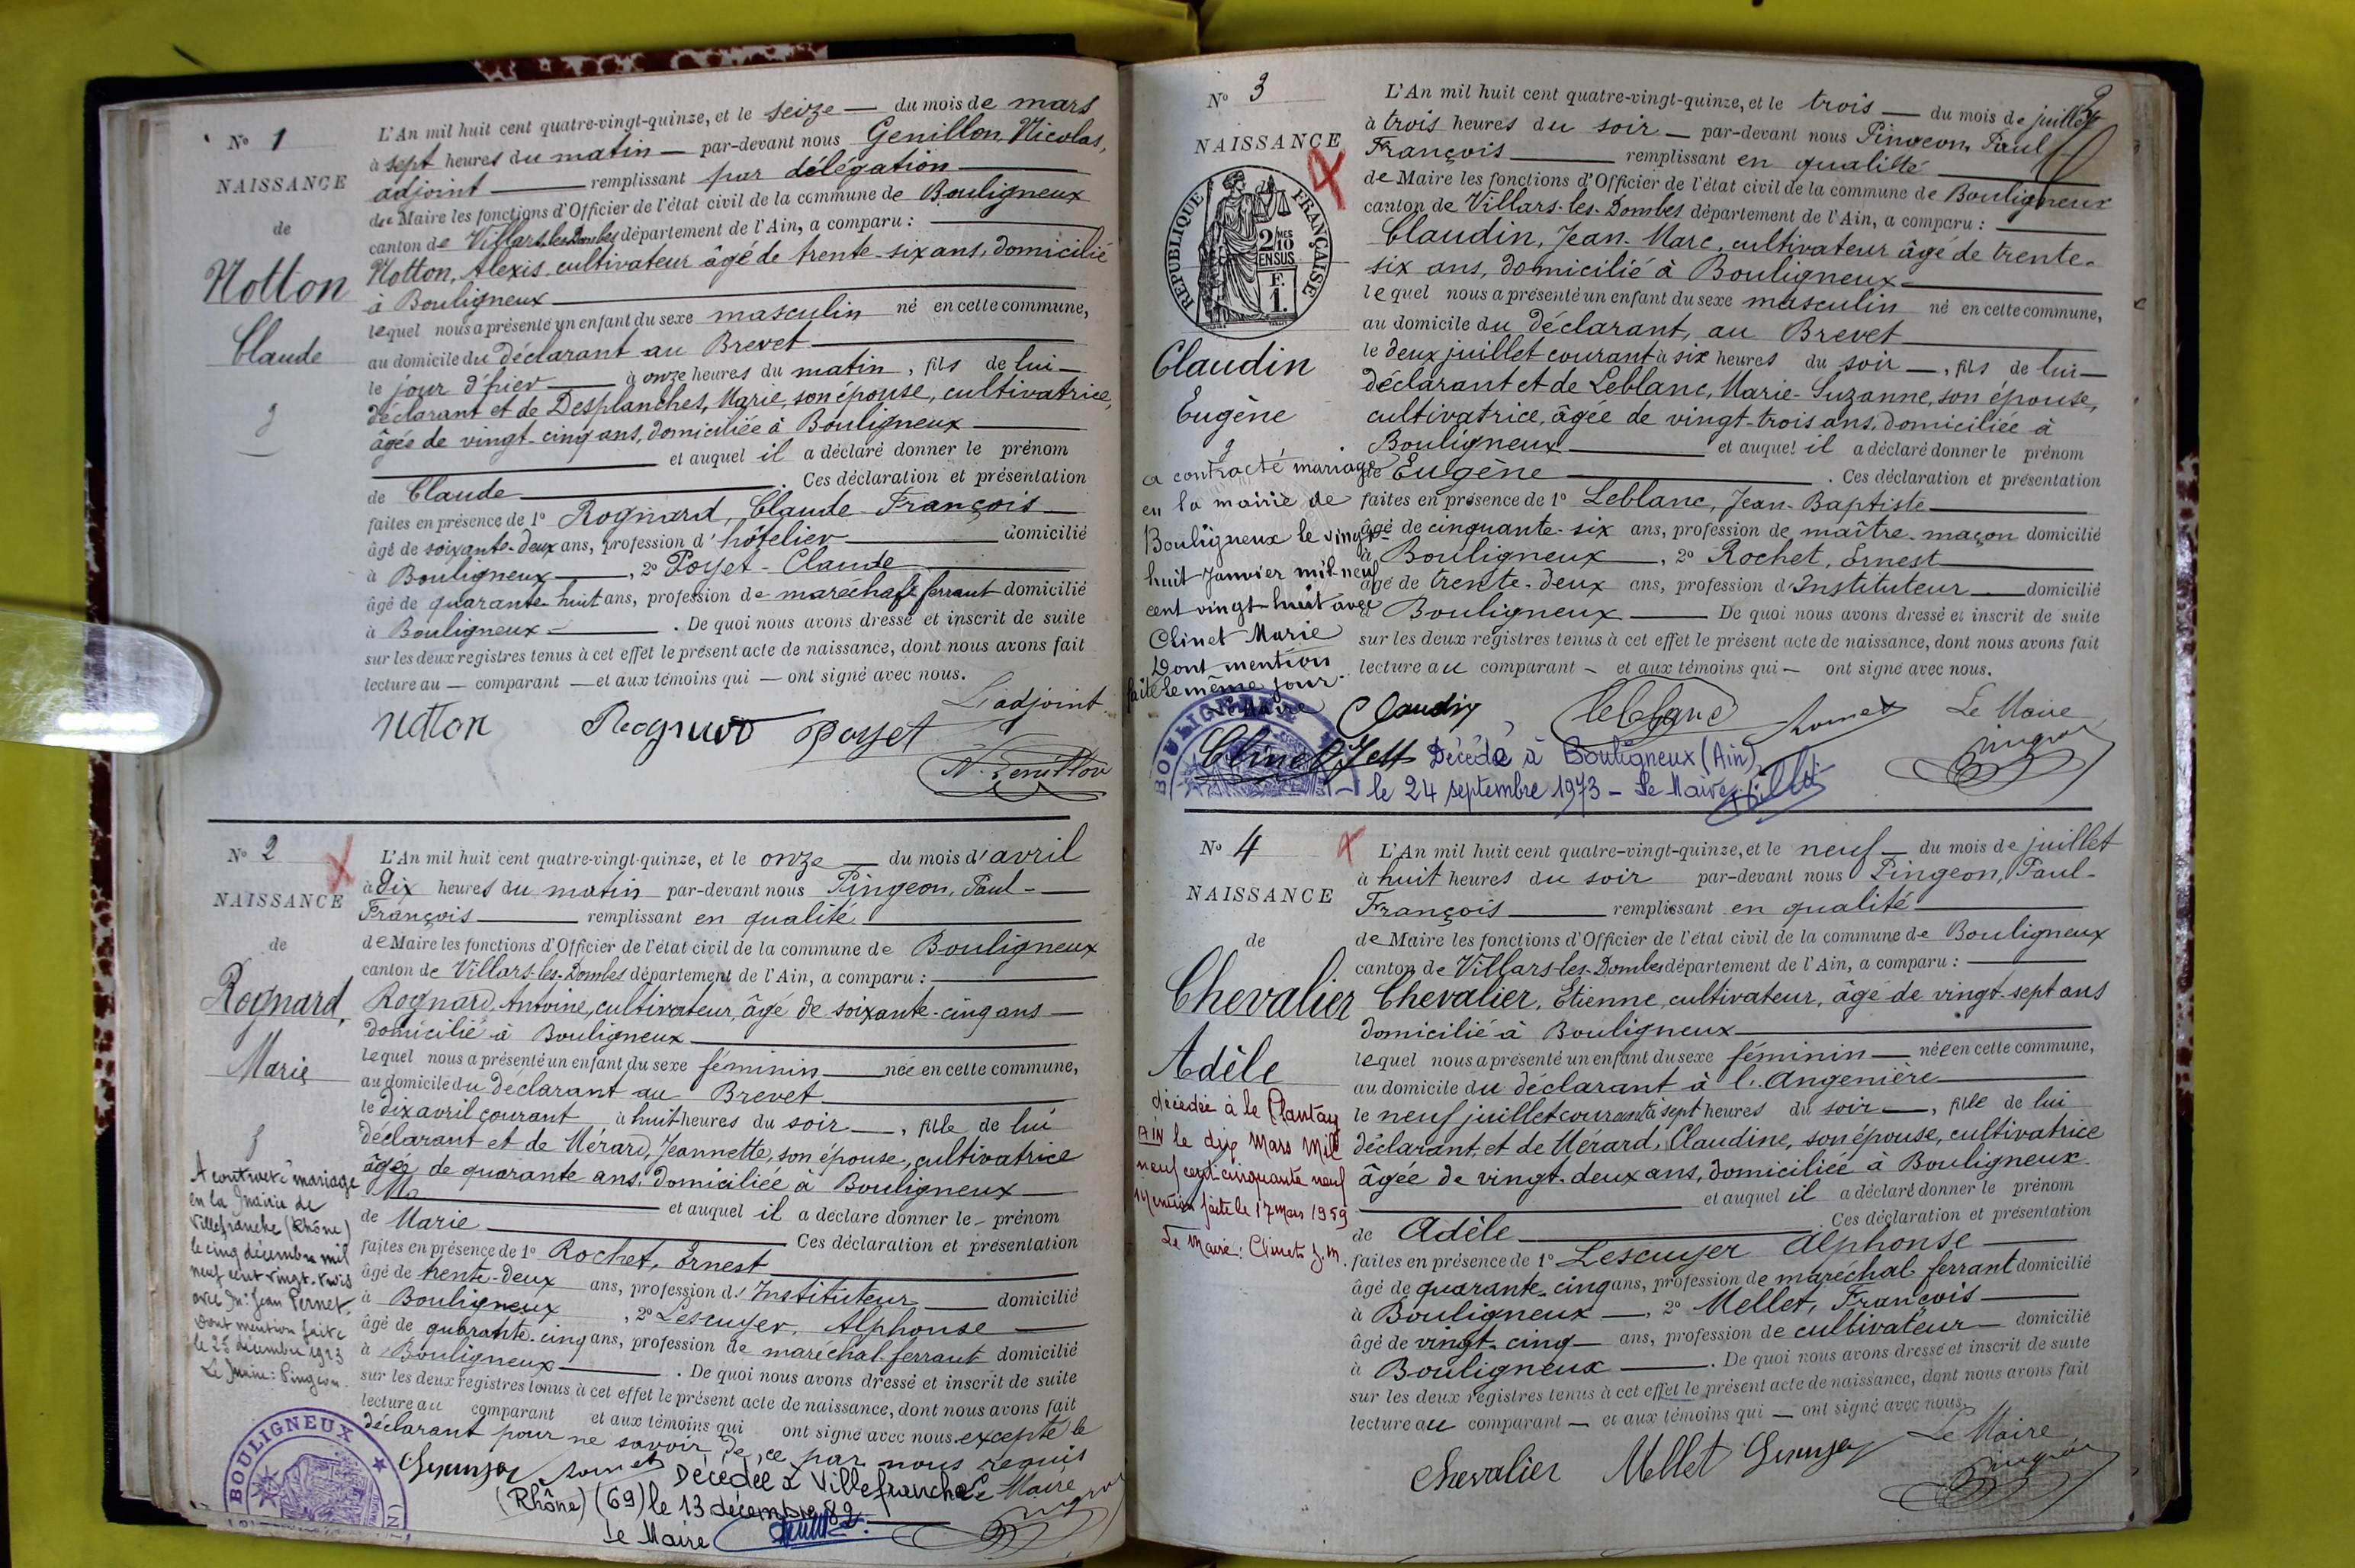 N° 1
NAISSANCE
de
Notton
Claude
L'An mil huit cent quatre-vingt-quinze, et le seize — du mois de mars
à sept heures du matin — par-devant nous Genillon, Nicolas,
adjoint — remplissant par délégation —
de Maire les fonctions d'Officier de l'état civil de la commune de Bouligneux
canton de Villars-les-Dombes département de l'Ain, a comparu : —
Notton, Alexis, cultivateur âgé de trente-six ans, domicilié
à Bouligneux —
lequel nous a présenté un enfant du sexe masculin né en cette commune,
au domicile du déclarant au Brevet —
le jour d'hier — à onze heures du matin, fils de lui —
déclarant et de Desplanches, Marie, son épouse, cultivatrice,
âgée de vingt-cinq ans, domiciliée à Bouligneux —
— et auquel il a déclaré donner le prénom
de Claude — . Ces déclaration et présentation
faites en présence de 1° Rognard, Claude-François —
âgé de soixante-deux ans, profession d'hôtelier — domicilié
à Bouligneux —, 2° Poyet-Claude —
âgé de quarante-huit ans, profession de maréchal ferrant domicilié
à Bouligneux — . De quoi nous avons dressé et inscrit de suite
sur les deux registres tenus à cet effet le présent acte de naissance, dont nous avons fait
lecture au — comparant — et aux témoins qui — ont signé avec nous.
L'adjoint
Notton Rognard Poyet
N. Genillon
N° 2
NAISSANCE
de
Rognard,
Marie
A contracté mariage
en la Mairie de
Villefranche (Rhône)
le cinq décembre mil
neuf cent vingt-trois
avec Mr Jean Pernet.
Dont mention faite
le 25 décembre 1923
Le Maire : Pingeon
BOULIGNEUX
L'An mil huit cent quatre-vingt-quinze, et le onze — du mois d'avril
à dix heures du matin par-devant nous Pingeon, Paul-
François — remplissant en qualité —
de Maire les fonctions d'Officier de l'état civil de la commune de Bouligneux
canton de Villars-les-Dombes département de l'Ain, a comparu : —
Rognard, Antoine, cultivateur, âgé de soixante-cinq ans —
domicilié à Bouligneux —
lequel nous a présenté un enfant du sexe féminin — née en cette commune,
au domicile du déclarant au Brevet —
le dix avril courant à huit heures du soir —, fille de lui
déclarant et de Mérard, Jeannette, son épouse, cultivatrice
âgée de quarante ans, domiciliée à Bouligneux —
— et auquel il a déclaré donner le — prénom
de Marie — Ces déclaration et présentation
faites en présence de 1° Rochet, Ernest —
âgé de trente-deux ans, profession d'Instituteur — domicilié
à Bouligneux, 2° Lescuyer, Alphonse —
âgé de quarante-cinq ans, profession de maréchal-ferrant domicilié
à Bouligneux — . De quoi nous avons dressé et inscrit de suite
sur les deux registres tenus à cet effet le présent acte de naissance, dont nous avons fait
lecture au comparant et aux témoins qui ont signé avec nous excepté le
déclarant pour ne savoir de ce par nous requis
Le Maire
Décédée à Villefranche
(Rhône) (69) le 13 décembre 82.
Le Maire
N° 3
NAISSANCE
RÉPUBLIQUE FRANÇAISE
2/10 MES
EN SUS
F.
1.
Claudin
Eugène
a contracté mariage
en la mairie de
Bouligneux le vingt-
huit Janvier mil neuf
cent vingt-huit avec
Clinet Marie
Dont mention
faite le même jour.
Le Maire
BOULIGNEUX
2
L'An mil huit cent quatre-vingt-quinze, et le trois — du mois de juillet
à trois heures du soir — par-devant nous Pingeon, Paul
François — remplissant en qualité —
de Maire les fonctions d'Officier de l'état civil de la commune de Bouligneux
canton de Villars-les-Dombes département de l'Ain, a comparu : —
Claudin, Jean-Marc, cultivateur âgé de trente-
six ans, domicilié à Bouligneux —
lequel nous a présenté un enfant du sexe masculin né en cette commune,
au domicile du déclarant, au Brevet —
le deux juillet courant à six heures du soir —, fils de lui —
déclarant et de Leblanc, Marie-Suzanne, son épouse,
cultivatrice, âgée de vingt-trois ans, domiciliée à
Bouligneux — et auquel il a déclaré donner le prénom
de Eugène — . Ces déclaration et présentation
faites en présence de 1° Leblanc, Jean-Baptiste —
âgé de cinquante-six ans, profession de maître-maçon domicilié
à Bouligneux —, 2° Rochet, Ernest —
âgé de trente-deux ans, profession d'Instituteur — domicilié
à Bouligneux — De quoi nous avons dressé et inscrit de suite
sur les deux registres tenus à cet effet le présent acte de naissance, dont nous avons fait
lecture au comparant — et aux témoins qui — ont signé avec nous.
Claudin Leblanc Le Maire
Décédé à Bouligneux (Ain)
le 24 septembre 1973 — Le Maire,
N° 4
NAISSANCE
de
Chevalier
Adèle
décédée à le Plantay
AIN le dix Mars Mil
neuf cent cinquante neuf
Mention faite le 17 mars 1959
Le Maire : Clinet J.M.
L'An mil huit cent quatre-vingt-quinze, et le neuf — du mois de juillet
à huit heures du soir par-devant nous Pingeon, Paul-
François — remplissant en qualité —
de Maire les fonctions d'Officier de l'état civil de la commune de Bouligneux
canton de Villars-les-Dombes département de l'Ain, a comparu : —
Chevalier, Etienne, cultivateur, âgé de vingt-sept ans
domicilié à Bouligneux —
lequel nous a présenté un enfant du sexe féminin — née en cette commune,
au domicile du déclarant à l'Angenière —
le neuf juillet courant à sept heures du soir —, fille de lui
déclarant, et de Merard, Claudine, son épouse, cultivatrice
âgée de vingt-deux ans, domiciliée à Bouligneux.
— et auquel il a déclaré donner le prénom
de Adèle — . Ces déclaration et présentation
faites en présence de 1° Lescuyer Alphonse —
âgé de quarante-cinq ans, profession de maréchal ferrant domicilié
à Bouligneux —, 2° Mellet, François —
âgé de vingt-cinq — ans, profession de cultivateur — domicilié
à Bouligneux — . De quoi nous avons dressé et inscrit de suite
sur les deux registres tenus à cet effet le présent acte de naissance, dont nous avons fait
lecture au comparant — et aux témoins qui — ont signé avec nous.
Le Maire
Chevalier Mellet